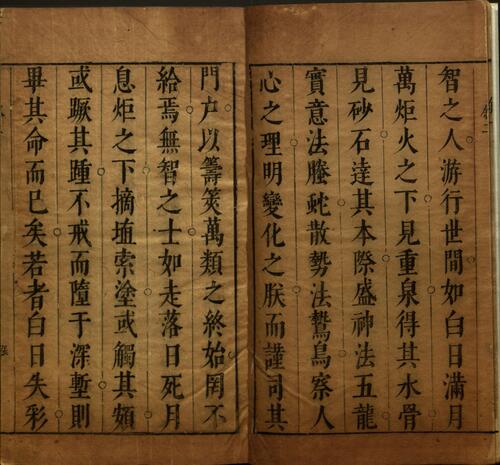 智之人游行世間如白日滿月
萬炬火之下見重泉得其水骨
見砂石達其本際盛神法五龍
實意法螣蛇散勢法鷙鳥察人
心之理明變化之朕而謹司其
門户以籌筴萬類之終始罔不
給焉無智之士如走落日死月
息炬之下摘埴索塗或觸其頞
或蹶其踵不戒而墮于深塹則
畢其命而已矣若者白日失彩